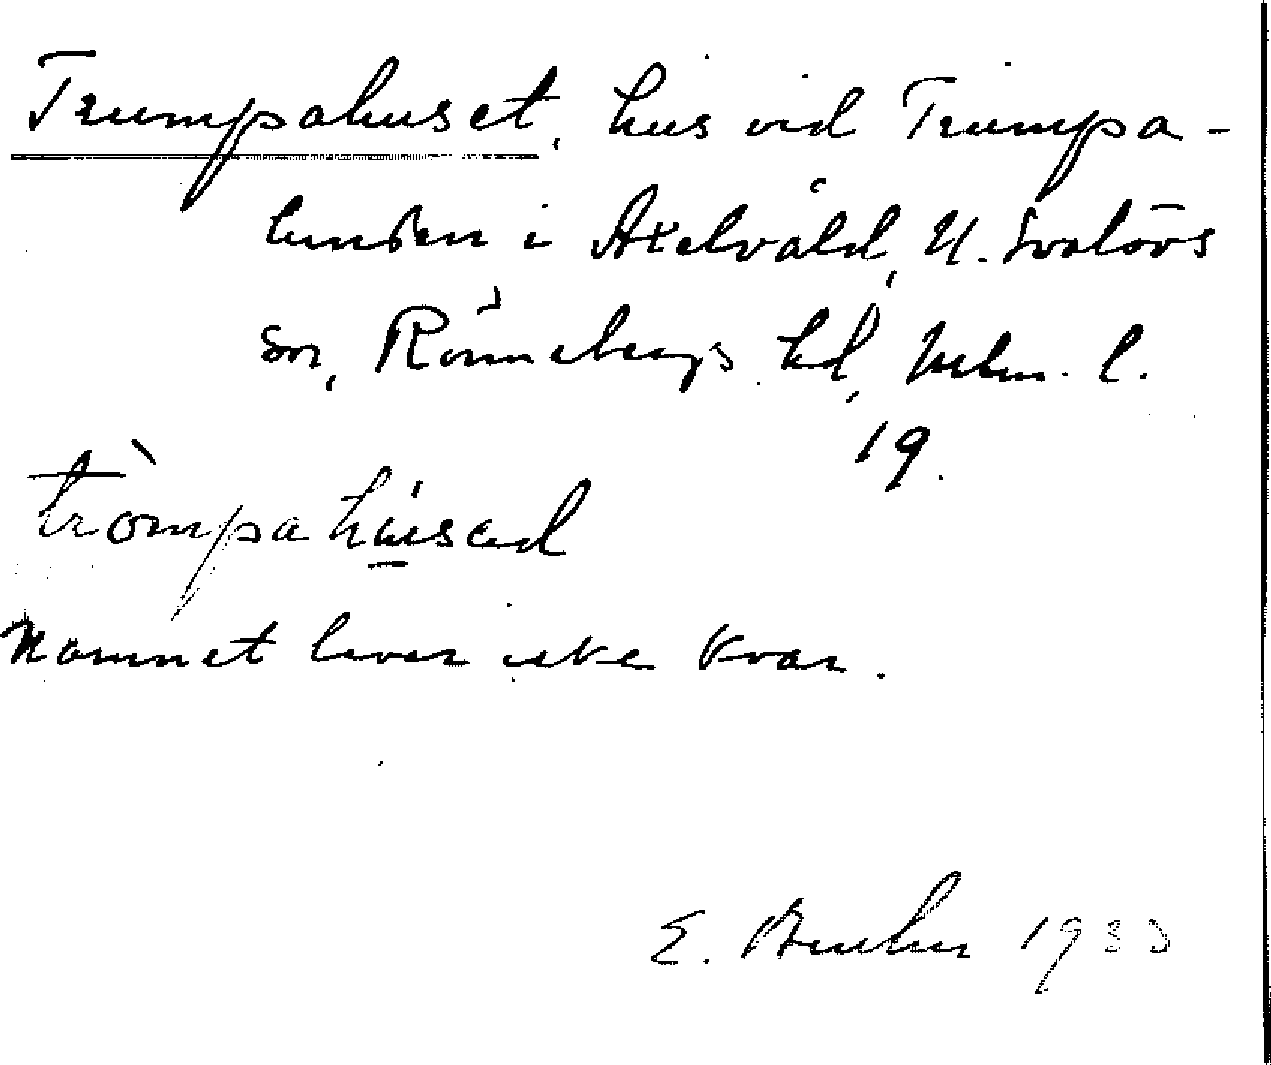 Trumpahuset, hus vid Trumpa-
lunden i Axelvåld, N. Svalövs
sn, Rönnebergs hd, Mlm. l.
19.
tròmpahúsəd
Namnet lever icke kvar.
E. 1933